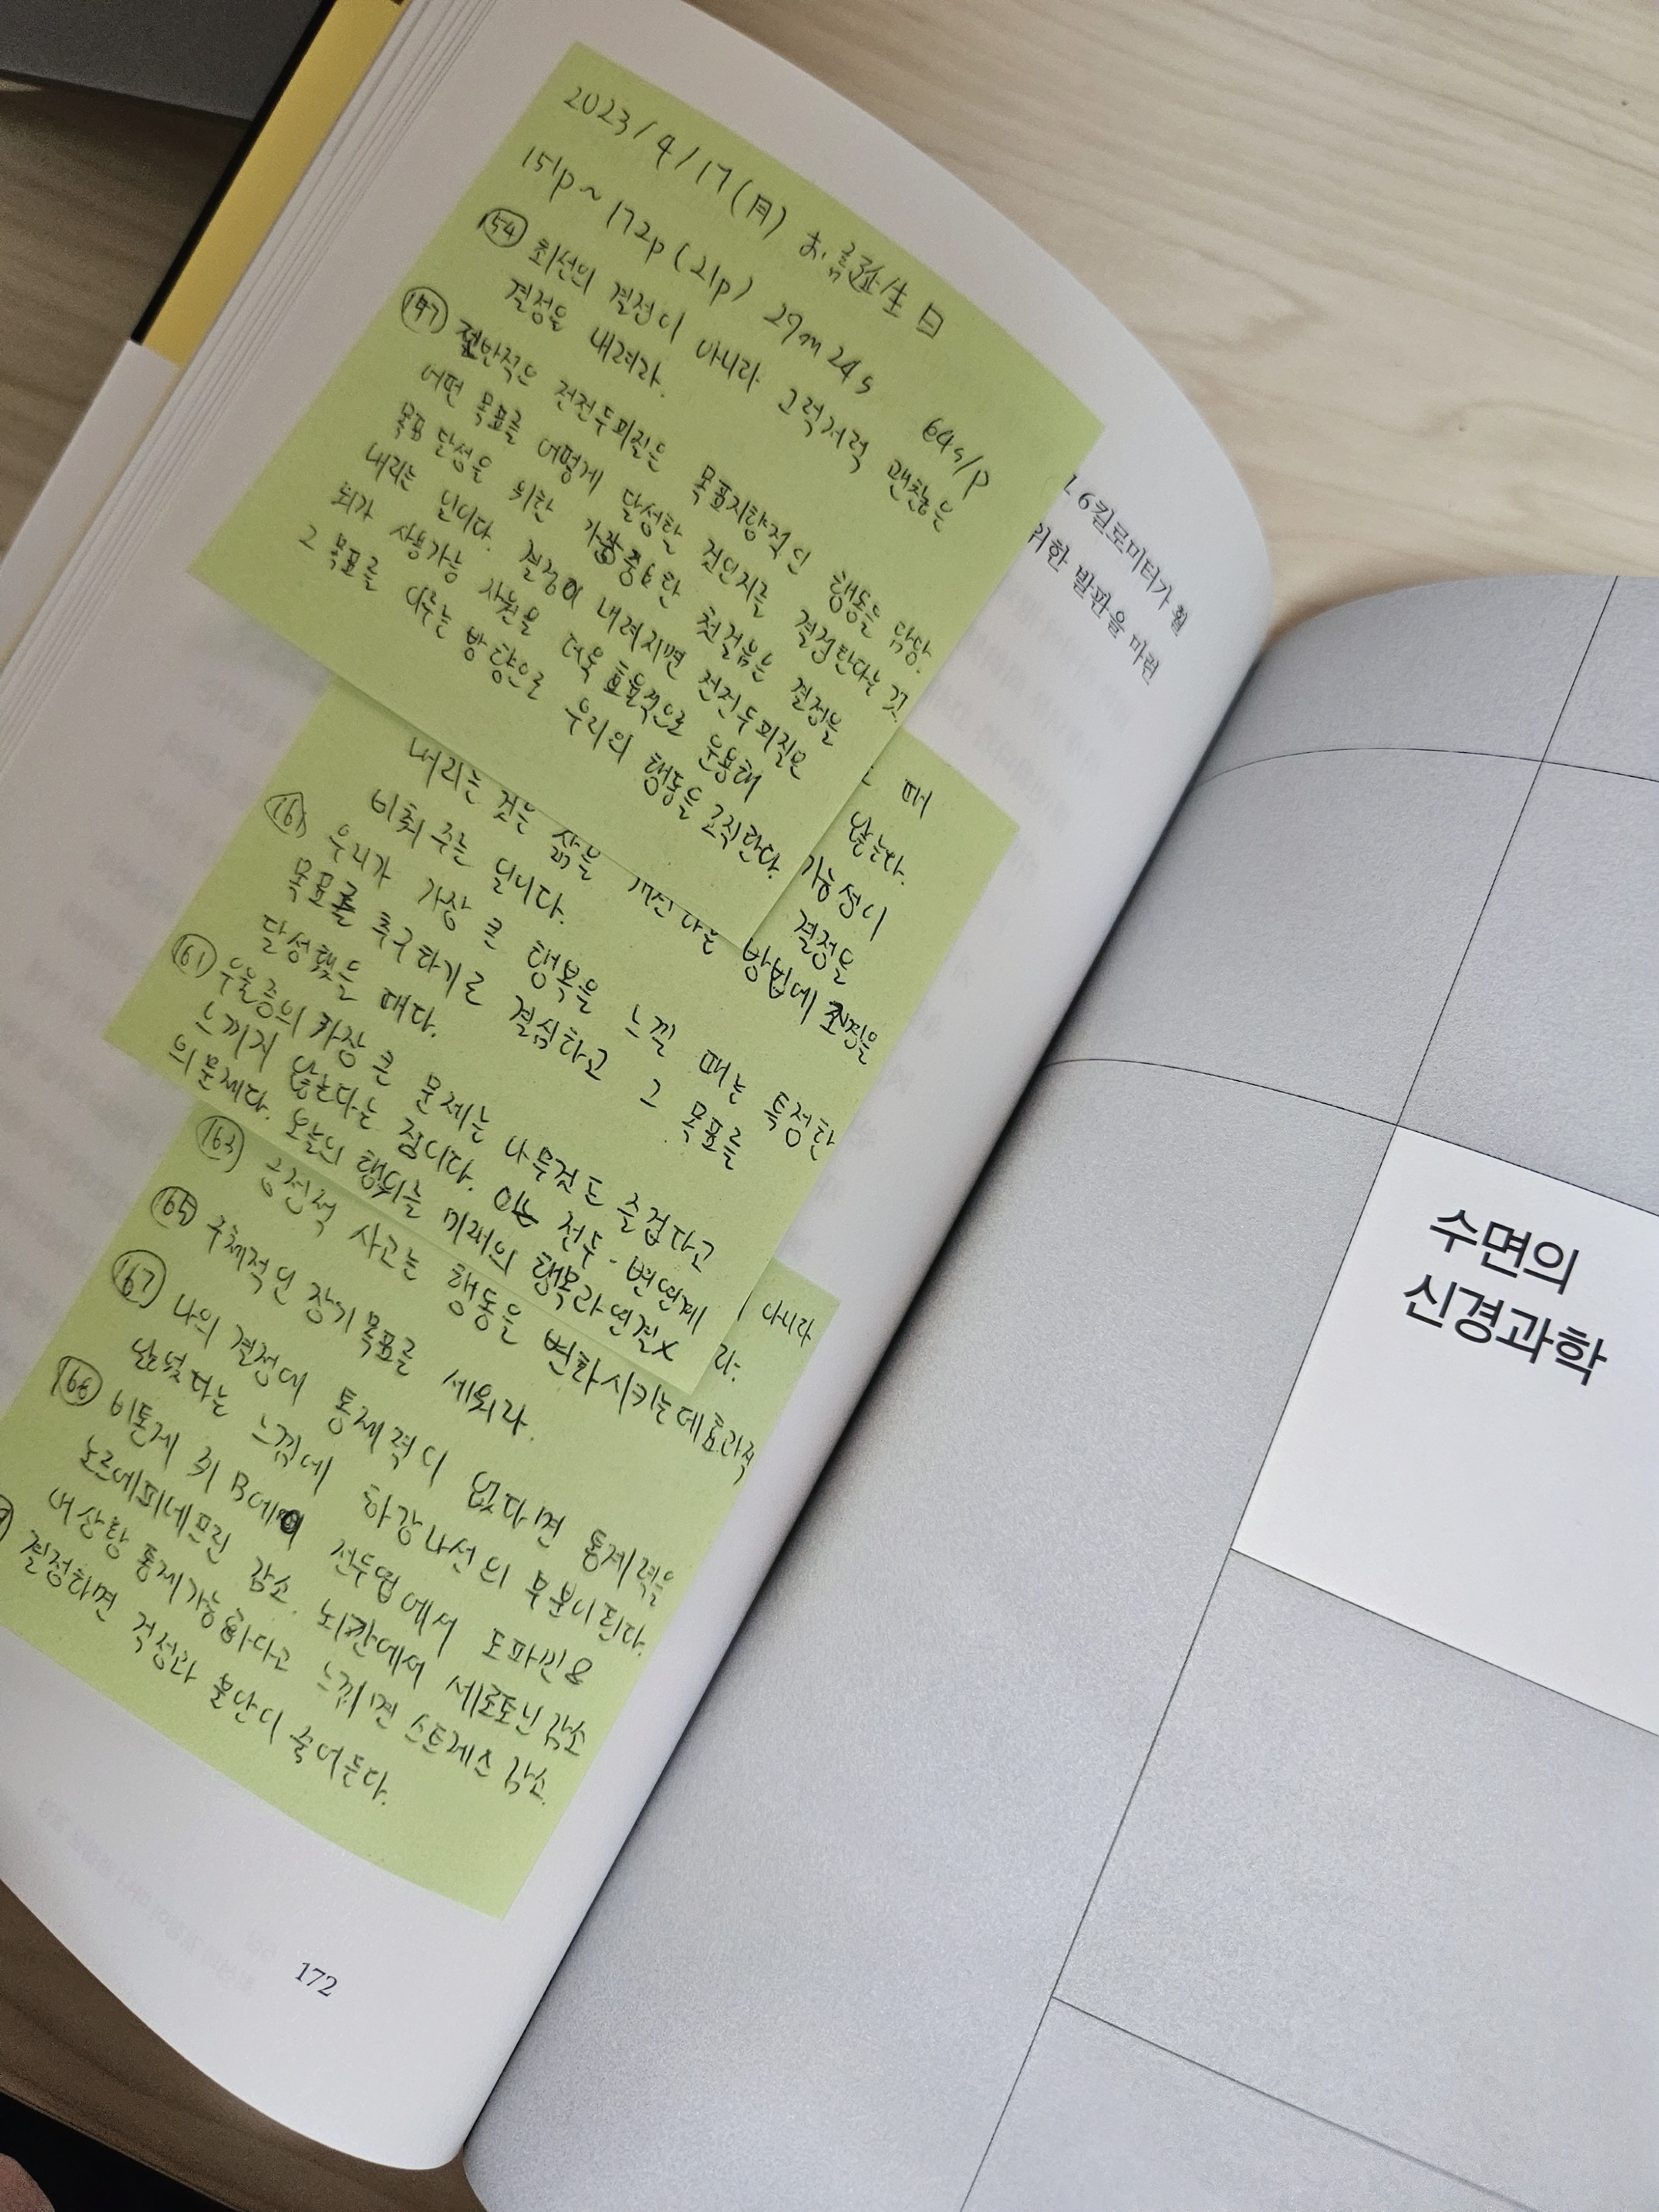 2023/4/17(月) お誕生日
151p~172p(21p) 29m 24s 64s/p
154 최선의 결정이 아니라 그럭저럭 괜찮은
결정을 내려라.
전전두피질은 목표지향적인 행동을 담당.
어떤 목표를 어떻게 달성할 것인지를 결정한다는 것.
목표 달성을 위한 가장 중요한 첫걸음는 결정을
내리는 일이다. 결정이 내려지면 전전두피질은
뇌가 사용가능 자원을 더욱 효율적으로 운용해
그 목표를 다루는 방향으로 우리의 행동을 조직한다.
때
않는다.
가능성이
결정을
내리는 것은 삶을 방법에 초점을
비춰 주는 일이다.
161 우리가 가장 큰 행복을 느낄 때는 특정한
목표를 추구하기로 결심하고 그 목표를
달성했을 때다.
161 우울증의 가장 큰 문제는 아무것도 즐겁다고
느끼지 않는다는 점이다. 이는 전두-변연계
의 문제다. 오늘의 행위는 미래의 행복과 연결x
아니라
라.
163 긍정적 사고는 행동을 변화시키는데 효과적
165 구체적인 장기 목표를 세워라.
167 나의 결정에 통제력이 없다면 통제력을
남았다는 느낌에 하강나선의 부분이 된다.
비통제 쥐 B에 전두엽에서 도파민&
노르에피네프린 감소. 뇌간에서 세로토닌 감소
어산항 통제가능하다고 느끼면 스트레스 감소.
결정하면 걱정과 불안이 줄어든다.
6킬로미터가 훨
위한 발판을 마련
172
수면의
신경과학